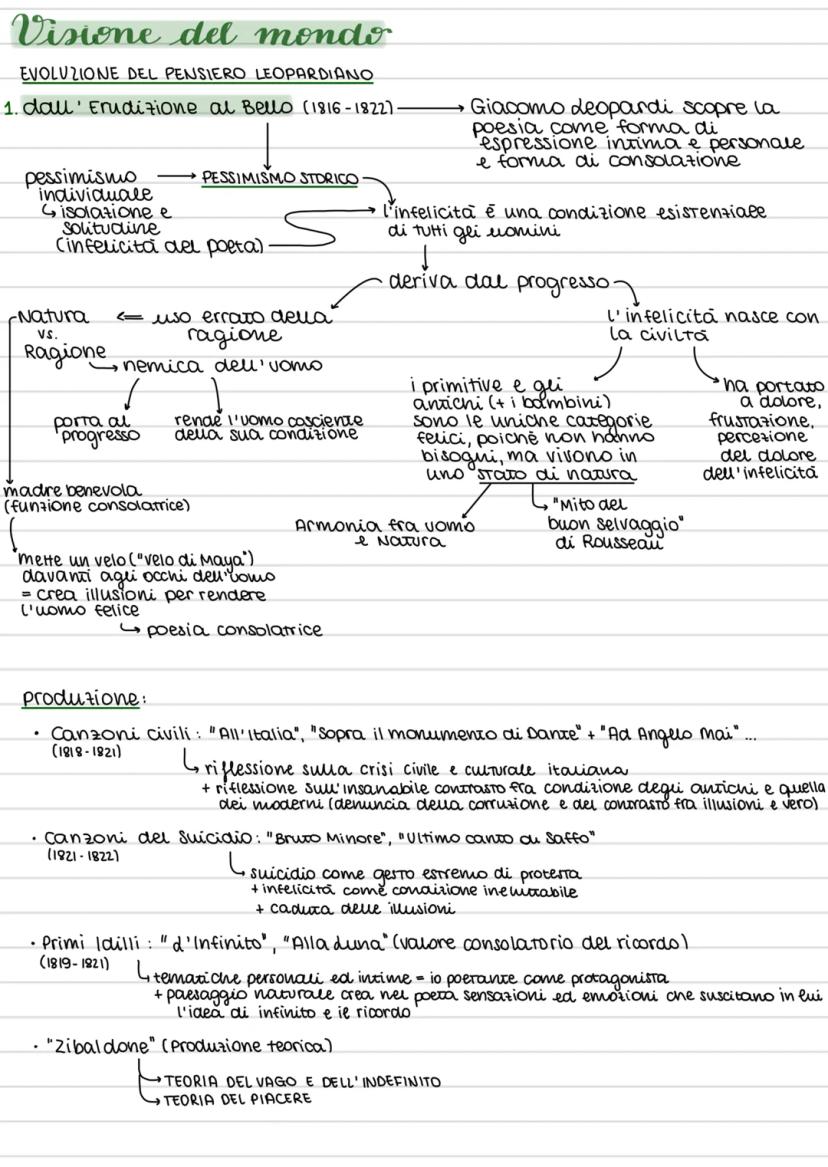 Visione del mondo
EVOLUZIONE DEL PENSIERO LEOPARDIANO
1. dall'Erudizione al Bello (1816-1822) → Giacomo Leopardi scopre la
poesia come forma di
espressione intima e personale
e forma di consolazione
pessimismo → PESSIMISMO STORICO
individuale
↳ isolazione e
solitudine
(infelicità del poeta)
l'infelicità è una condizione esistenziale
di tutti gli uomini
deriva dal progresso
Natura ⇐ uso errato della
ragione
vs.
Ragione
↳ nemica dell'uomo
porta al
progresso
rende l'uomo cosciente
della sua condizione
l'infelicità nasce con
la civiltà
i primitive e gli
antichi (+ i bambini)
sono le uniche categorie
felici, poichè non hanno
bisogni, ma vivono in
uno stato di natura
ha portato
a dolore,
frustrazione,
percezione
del dolore
dell'infelicità
Armonia fra uomo
e Natura
↳ "Mito del
buon selvaggio"
di Rousseau
madre benevola
(funzione consolatrice)
mette un velo ("velo di Maya")
davanti agli occhi dell'uomo
= crea illusioni per rendere
l'uomo felice
↳ poesia consolatrice
produzione:
• Canzoni civili: "All'Italia", "Sopra il monumento di Dante" + "Ad Angelo Mai"...
(1818-1821)
↳ riflessione sulla crisi civile e culturale italiana
+ riflessione sull'insanabile contrasto fra condizione degli antichi e quella
dei moderni (denuncia della corruzione e del contrasto fra illusioni e vero)
• Canzoni del Suicidio: "Bruto Minore", "Ultimo canto di Saffo"
(1821-1822)
↳ suicidio come gesto estremo di protesta
+ infelicità come condizione ineluttabile
+ caduta delle illusioni
• Primi Idilli: "L'Infinito", "Alla Luna" (valore consolatorio del ricordo)
(1819-1821)
↳ tematiche personali ed intime = io poetante come protagonista
+ paesaggio naturale crea nel poeta sensazioni ed emozioni che suscitano in lui
l'idea di infinito e il ricordo
• "Zibaldone" (Produzione teorica)
→ TEORIA DEL VAGO E DELL'INDEFINITO
→ TEORIA DEL PIACERE